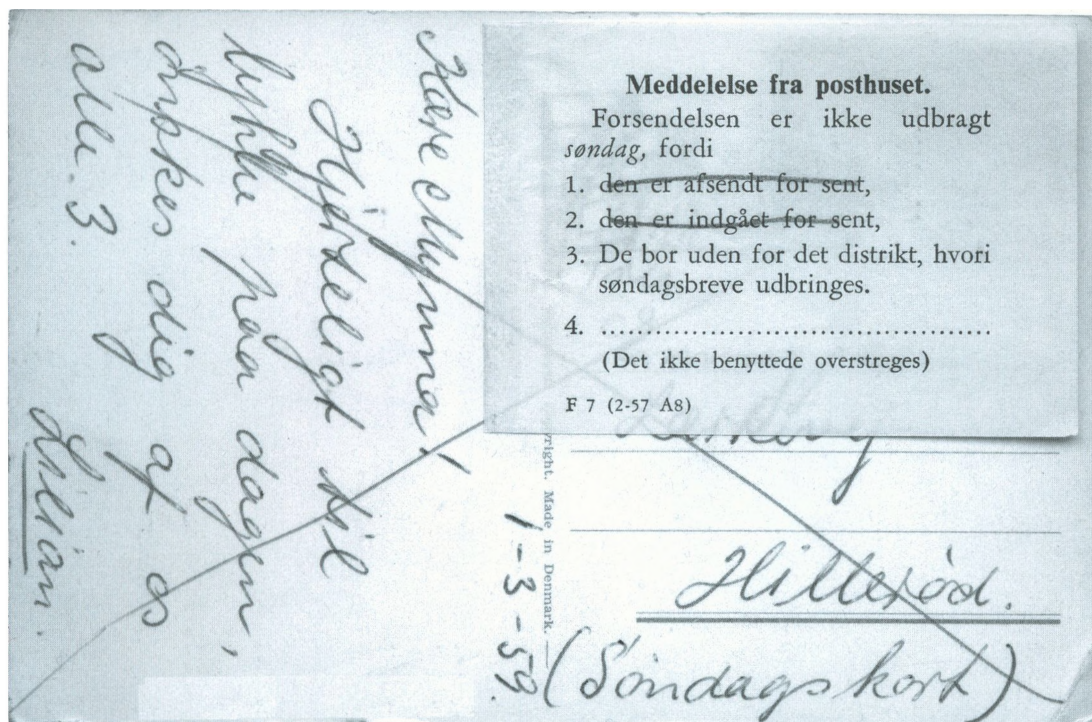 Kære Mynna!
Hjerteligt til
lykke paa dagen,
ønskes dig af os
alle. 3.
Lillian.
Meddelelse fra posthuset.
Forsendelsen er ikke udbragt
søndag, fordi
1. den er afsendt for sent,
2. den er indgået for sent,
3. De bor uden for det distrikt, hvori
søndagsbreve udbringes.
4. ..........................................
(Det ikke benyttede overstreges)
F 7 (2-57 A8)
yright. Made in Denmark. —
1-3-59.
Hillerød.
(Søndagskort)